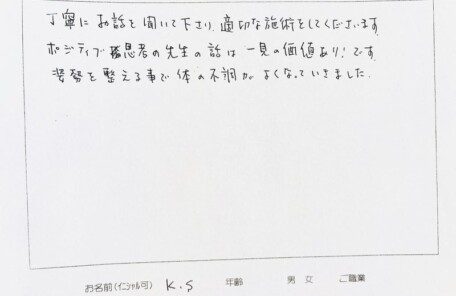 丁寧にお話を聞いて下さり、適切な施術をしてくださいます。
ポジティブ思考の先生の話は一見の価値あり！です。
姿勢を整える事で体の不調がよくなっていきました。
お名前（イニシャル可） K.S 年齢 男 女 ご職業